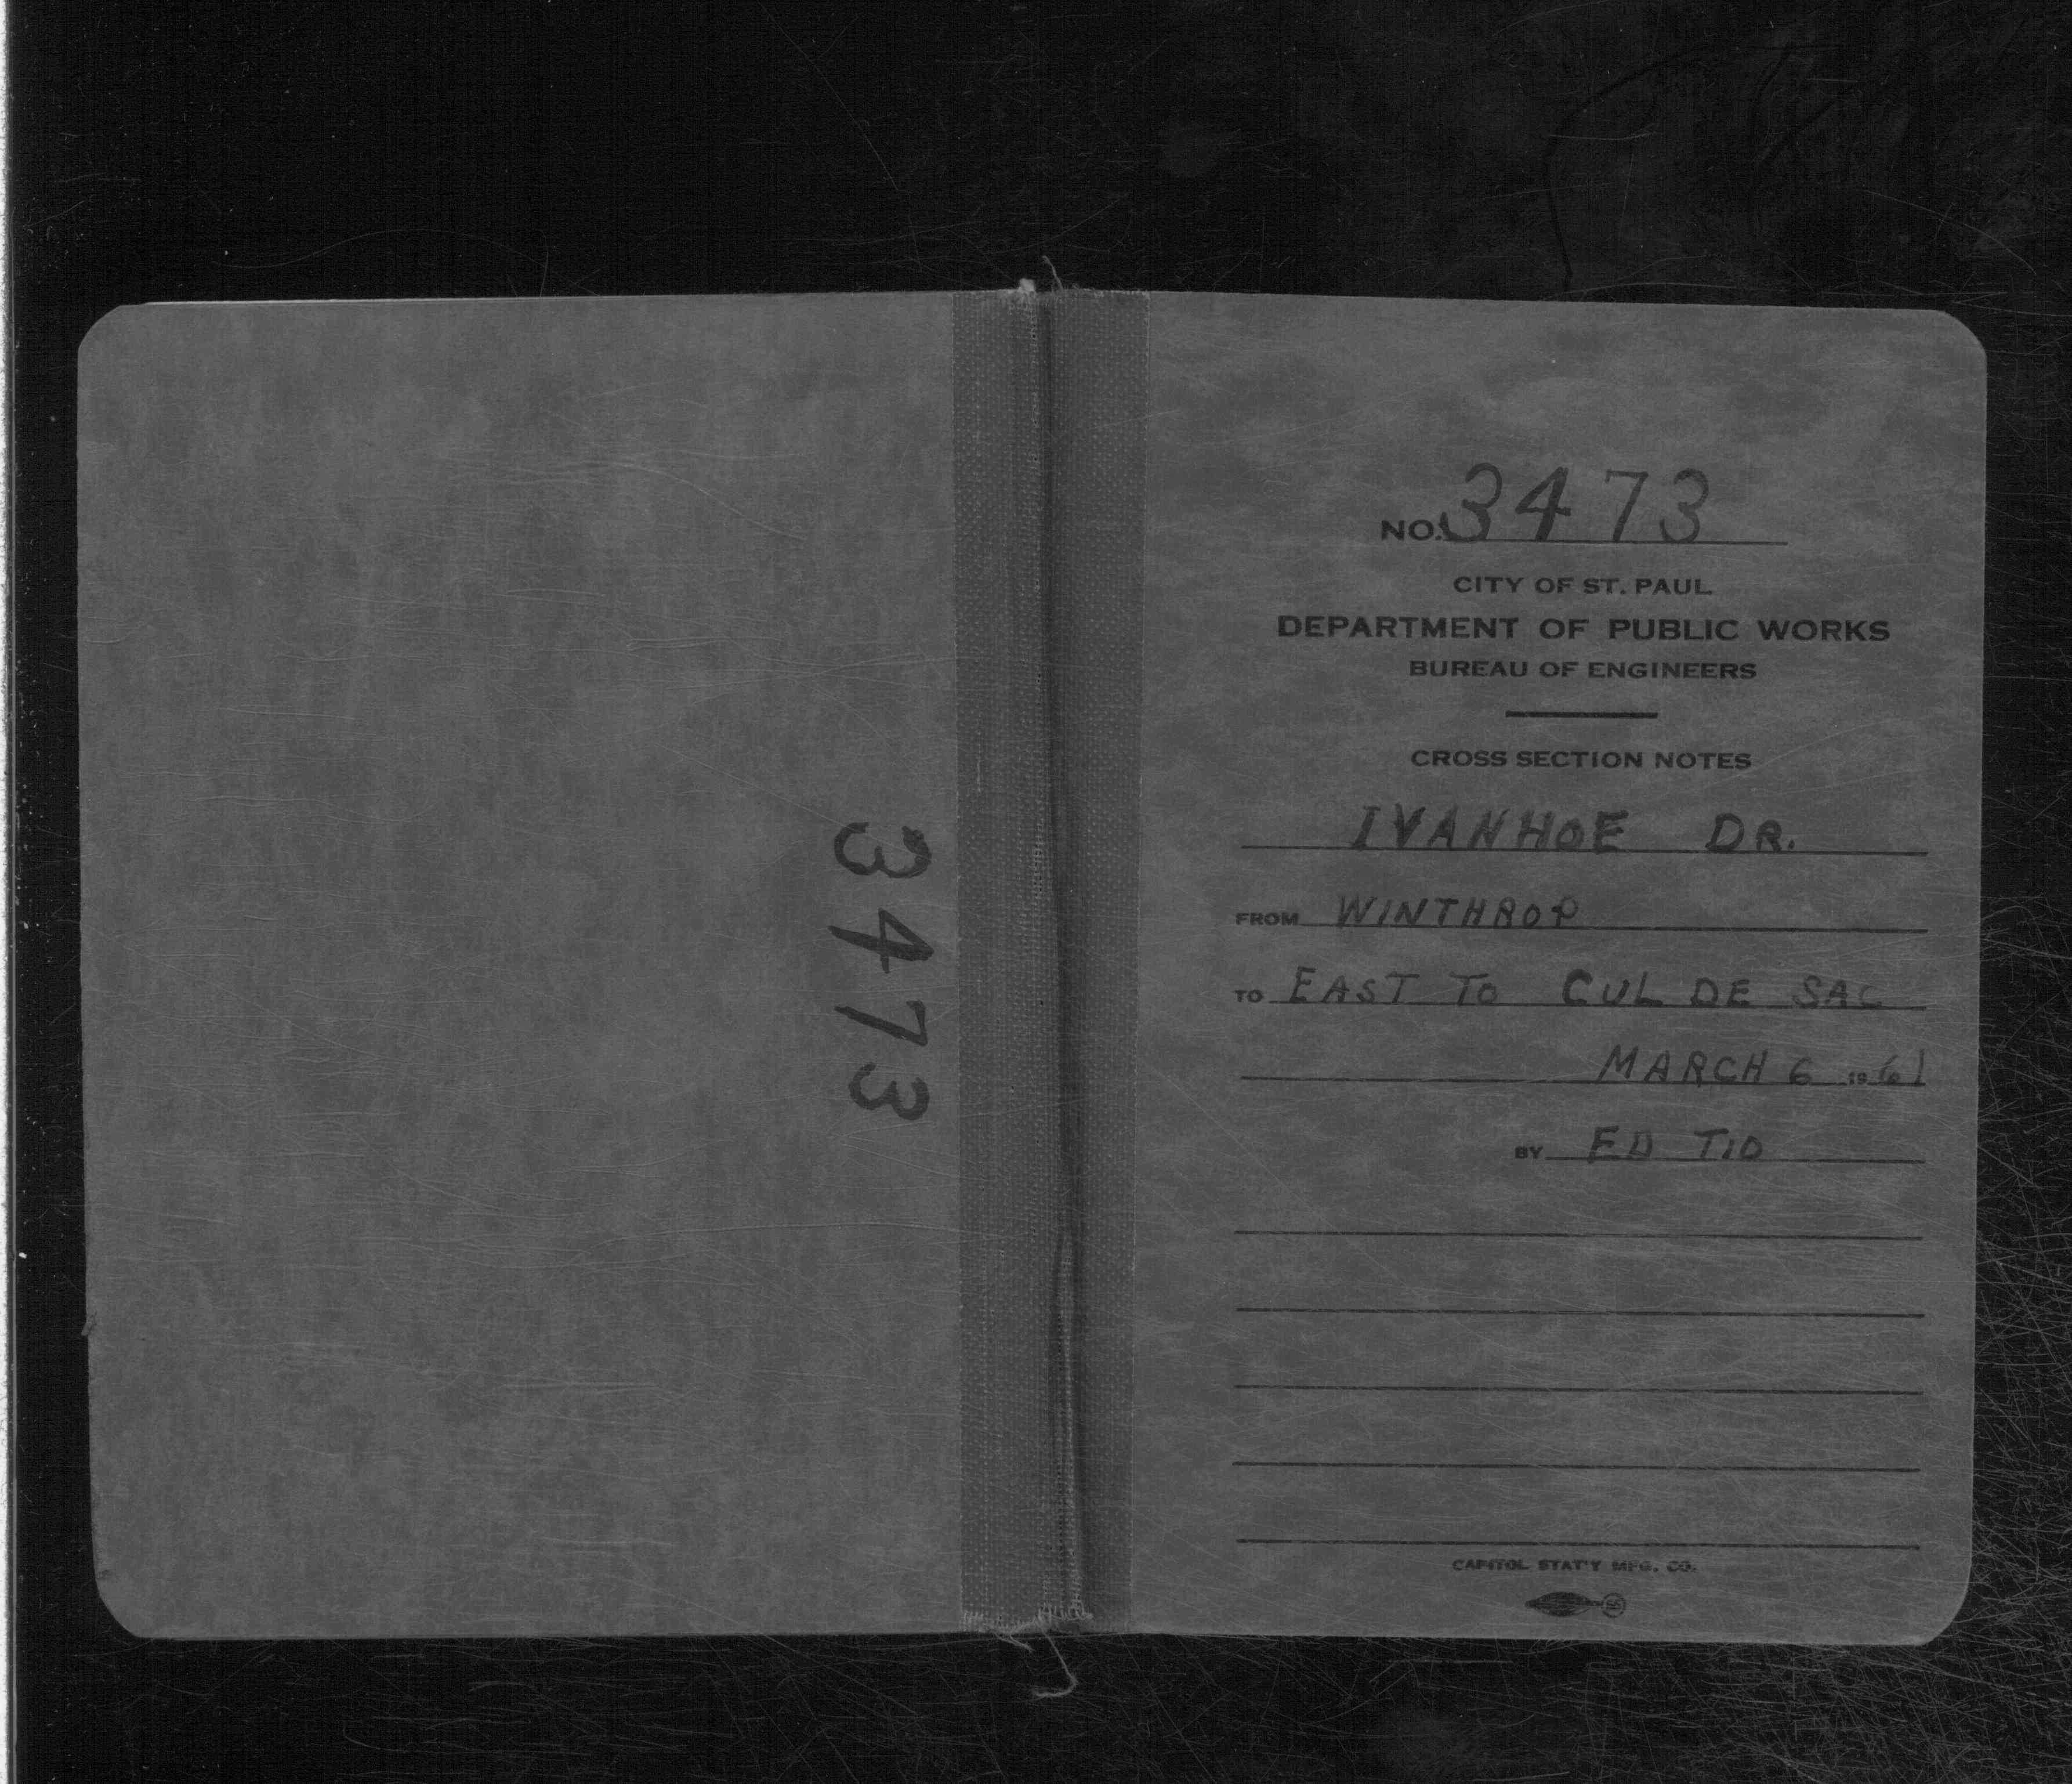 3473
NO. 3473
CITY OF ST. PAUL
DEPARTMENT OF PUBLIC WORKS
BUREAU OF ENGINEERS
CROSS SECTION NOTES
IVANHOE DR.
FROM WINTHROP
TO EAST TO CUL DE SAC
MARCH 6 1961
BY ED TIO
CAPITOL STAT'Y MFG. CO.